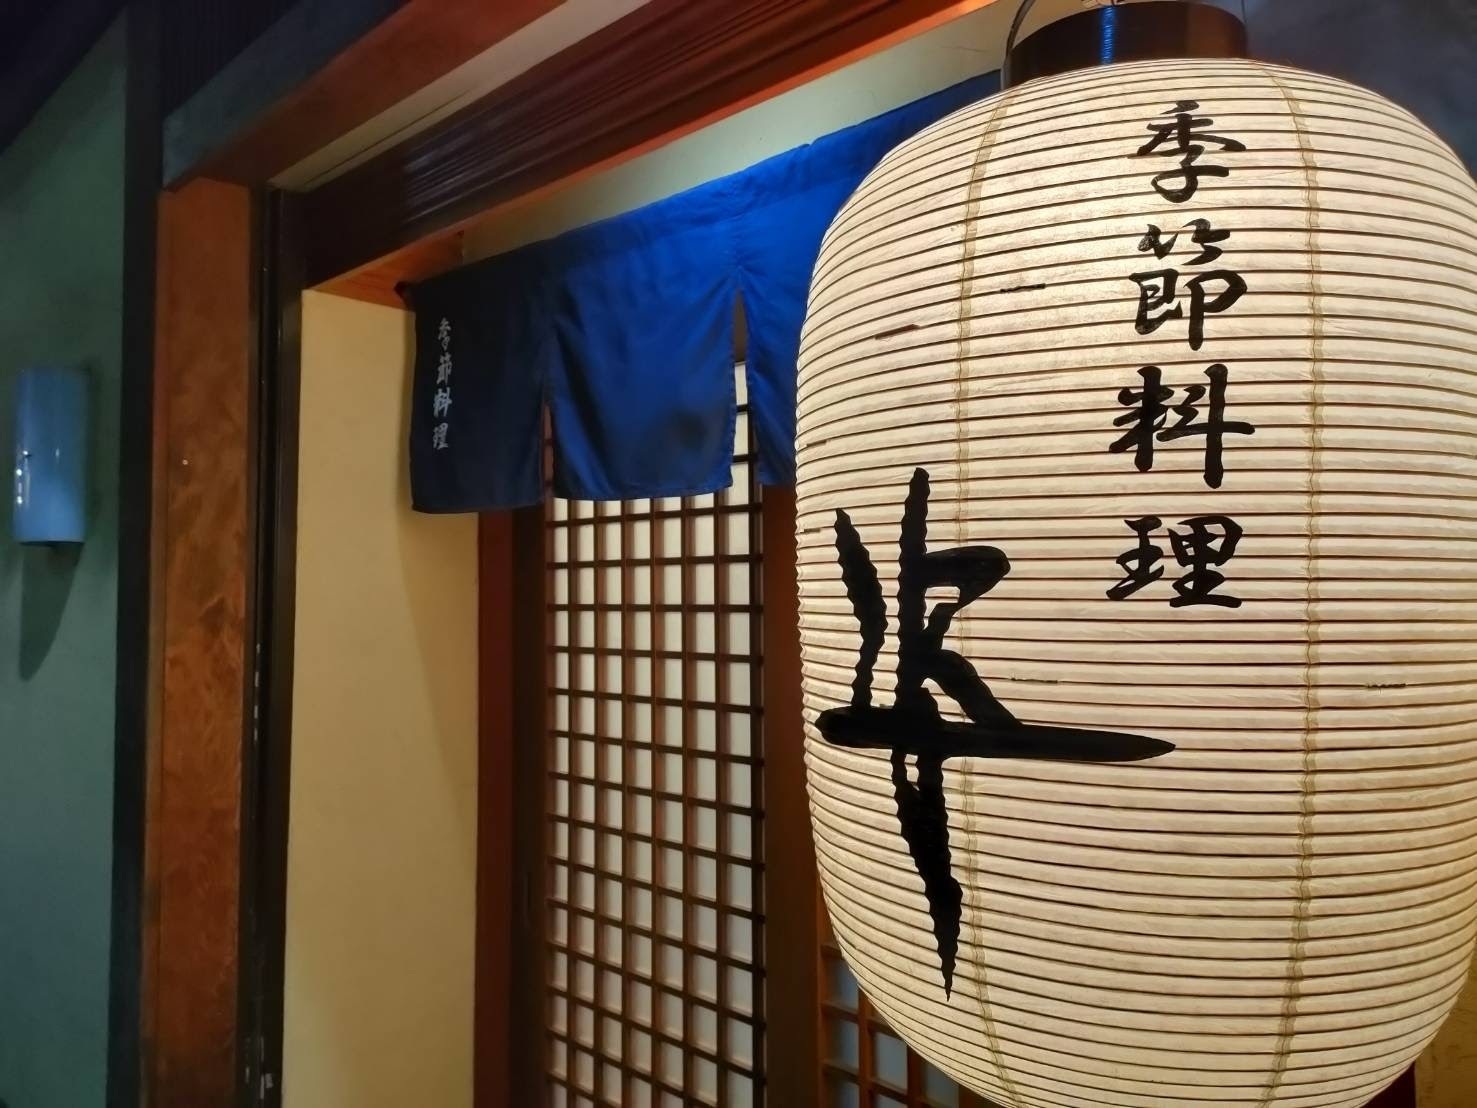 季節料理
季節料理